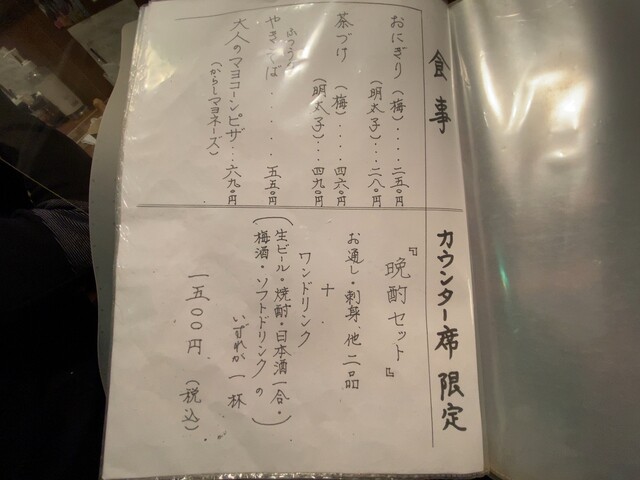 食事
おにぎり（梅）...二五〇円
（明太子）...二八〇円
茶づけ（梅）....四六〇円
（明太子）...四九〇円
ふつうの
やきそば.....五五〇円
大人のマヨコーンピザ...六九〇円
（からしマヨネーズ）
カウンター席 限定
『晩酌セット』
お通し・刺身、他 二品
＋
ワンドリンク
（生ビール・焼酎・日本酒一合・
梅酒・ソフトドリンクの）
いずれか一杯
一五〇〇円（税込）